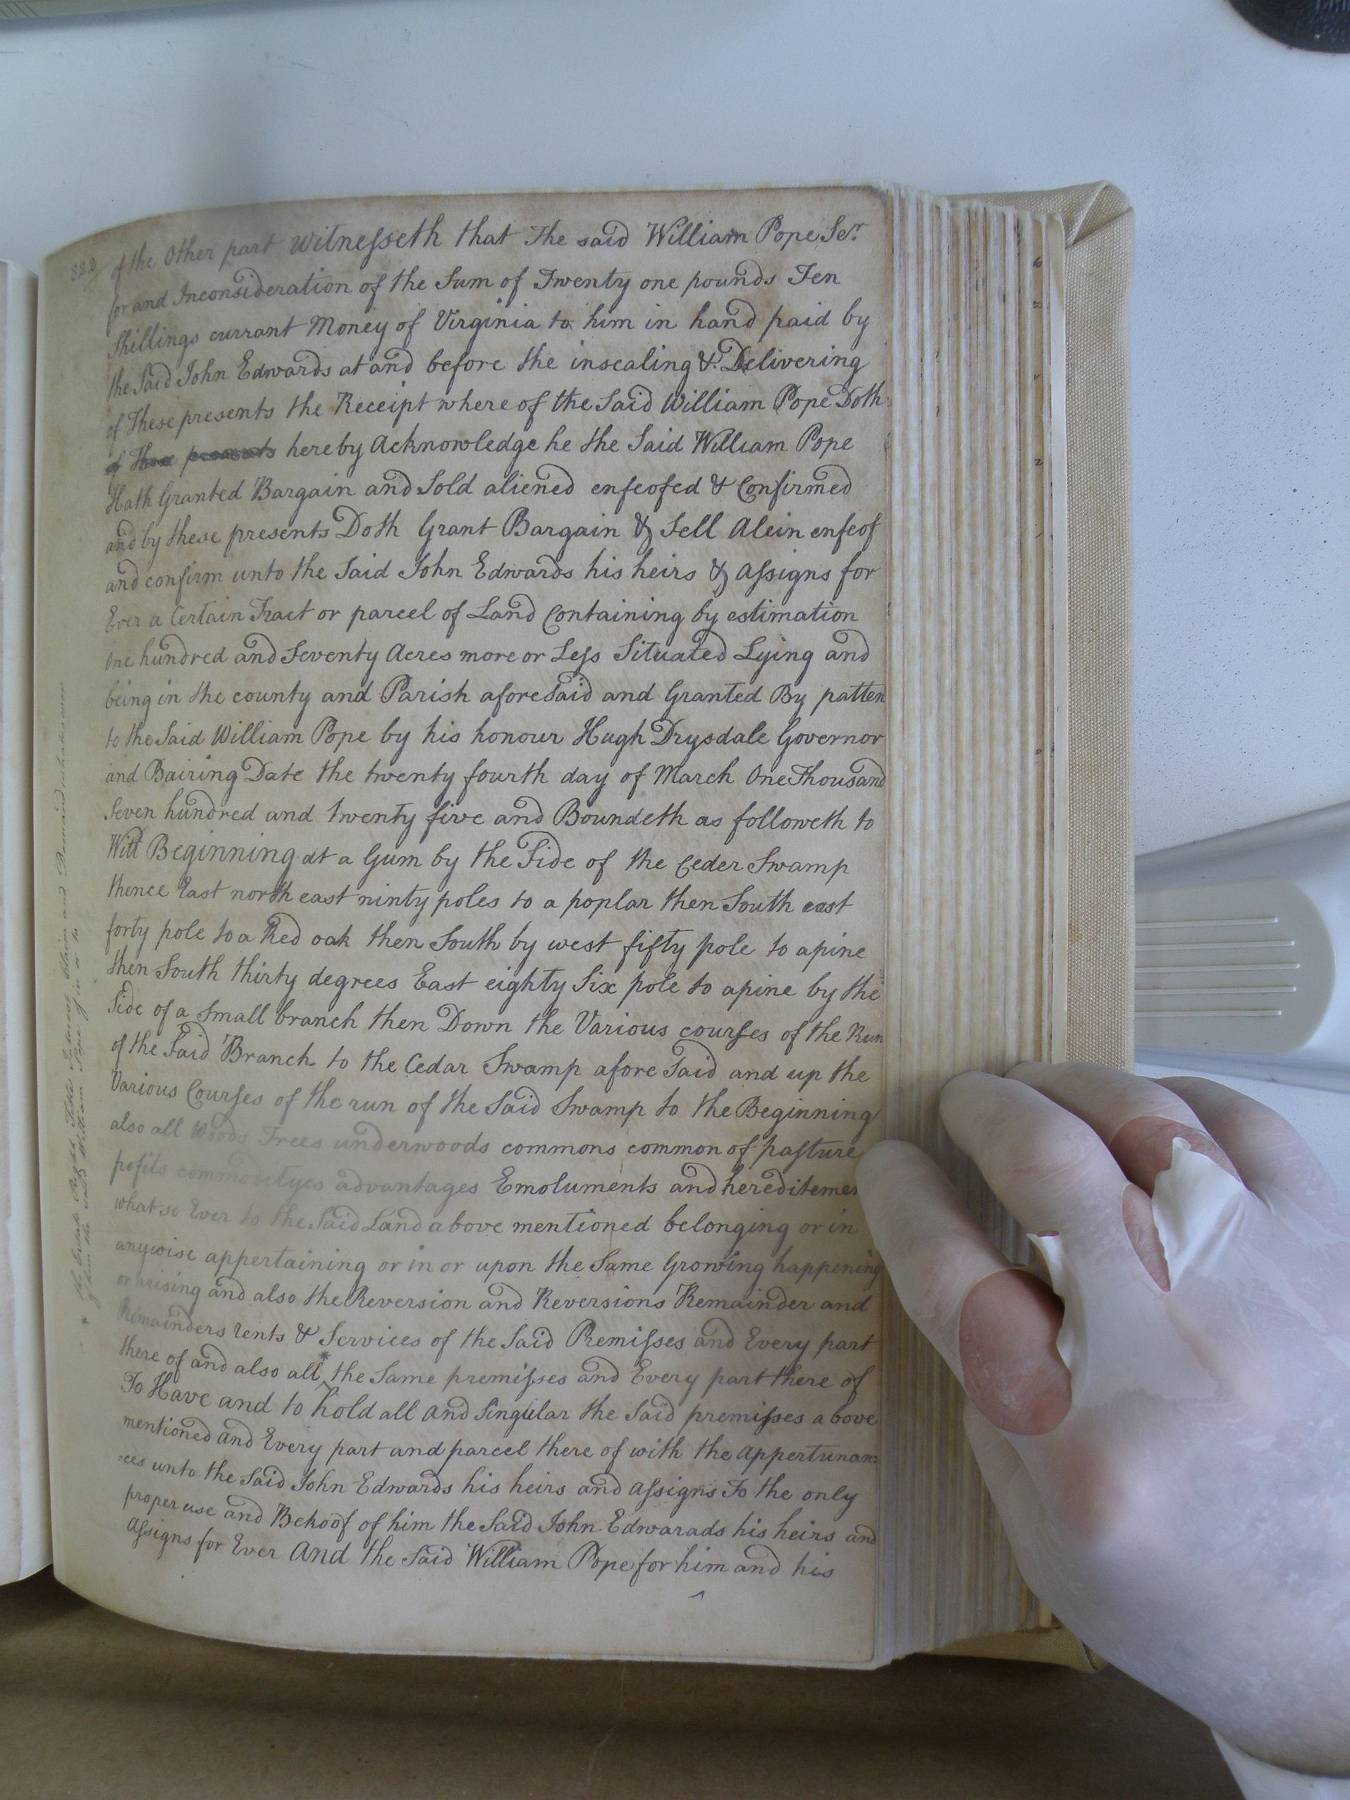 of the Other part Witnesseth that The said William Pope Ser.
for and Inconsideration of the Sum of Twenty one pounds Ten
Shillings currant Money of Virginia to him in hand paid by
the Said John Edwards at and before the insealing &. Delivering
of These presents the Receipt where of the Said William Pope Doth
of These presents hereby Acknowledge he the Said William Pope
Hath Granted Bargain and Sold aliened enfeofed & Confirmed
and by these presents Doth Grant Bargain & Sell Alein enfeof
and confirm unto the Said John Edwards his heirs & Assigns for
Ever a Certain Tract or parcel of Land Containing by estimation
One hundred and Seventy Acres more or Less Situated Lying and
being in the county and Parish afore Said and Granted By patten
to the Said William Pope by his honour Hugh Drysdale Governor
and Bairing Date the twenty fourth day of March One Thousand
Seven hundred and twenty five and Boundeth as followeth to
Witt Beginning at a Gum by the Side of the Ceder Swamp
thence East north east ninty poles to a poplar then South east
forty pole to a Red oak then South by west fifty pole to a pine
then South thirty degrees East eighty Six pole to a pine by the
Side of a Small branch then Down the Various courses of the Run
of the Said Branch to the Cedar Swamp afore Said and up the
Various Courses of the run of the Said Swamp to the Beginning
also all Woods Trees underwoods commons common of pasture
profits commodityes advantages Emoluments and hereditemen
what so Ever to the Said Land above mentioned belonging or in
anywise appertaining or in or upon the Same Growing happening
or arising and also the Reversion and Reversions Remainder and
Remainders rents & Services of the Said Premisses and Every part
there of and also all the Same premisses and Every part there of
To Have and to hold all and Singular the Said premisses above
mentioned and Every part and parcel there of with the Appertunan
ces unto the Said John Edwards his heirs and Assigns To the only
proper use and Behoof of him the Said John Edwarads his heirs and
Assigns for Ever And the Said William Pope for him and his
the Estate Right Title Interest Claim and Demand whatsoever
of him the said William Pope of in or to